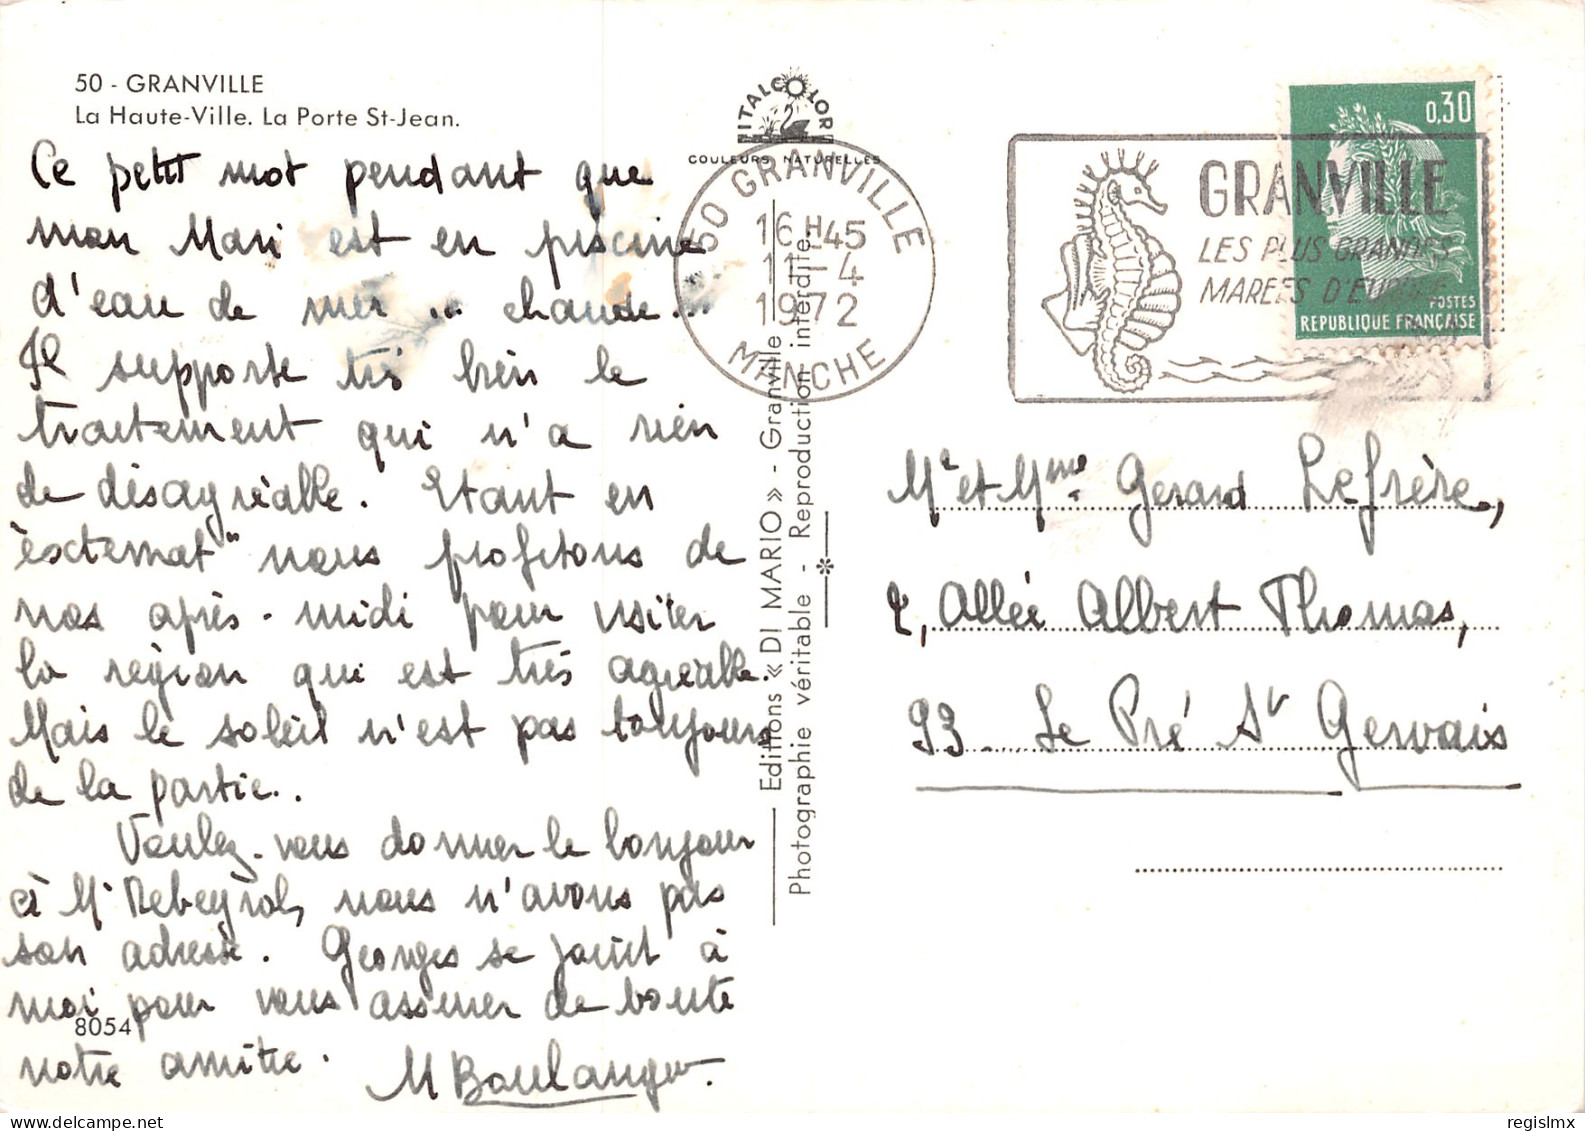 50 - GRANVILLE
La Haute-Ville. La Porte St-Jean.
Ce petit mot pendant que
mon Mari est en piscine
d'eau de mer ... chaude...
Il supporte très bien le
traitement qui n'a rien
de désagréable. Etant en
"externat" nous profitons de
nos après-midi pour visiter
la région qui est très agréable.
Mais le soleil n'est pas toujours
de la partie..
Voulez-vous donner le bonjour
à Mr Rebeyrol, nous n'avons pas
son adresse. Georges se joint à
moi pour vous assurer de toute
notre amitié. M Boulanger.
8054
ITALCOLOR
COULEURS NATURELLES
50 GRANVILLE
16H45
11-4
1972
MANCHE
Editions « DI MARIO » - Granville
Photographie véritable - Reproduction interdite
GRANVILLE
LES PLUS GRANDES
MAREES D'EUROPE
0,30
POSTES
REPUBLIQUE FRANÇAISE
Mr et Mme Gerard Lefrère,
2, Allée Albert Thomas,
93 - Le Pré St Gervais
regislmx